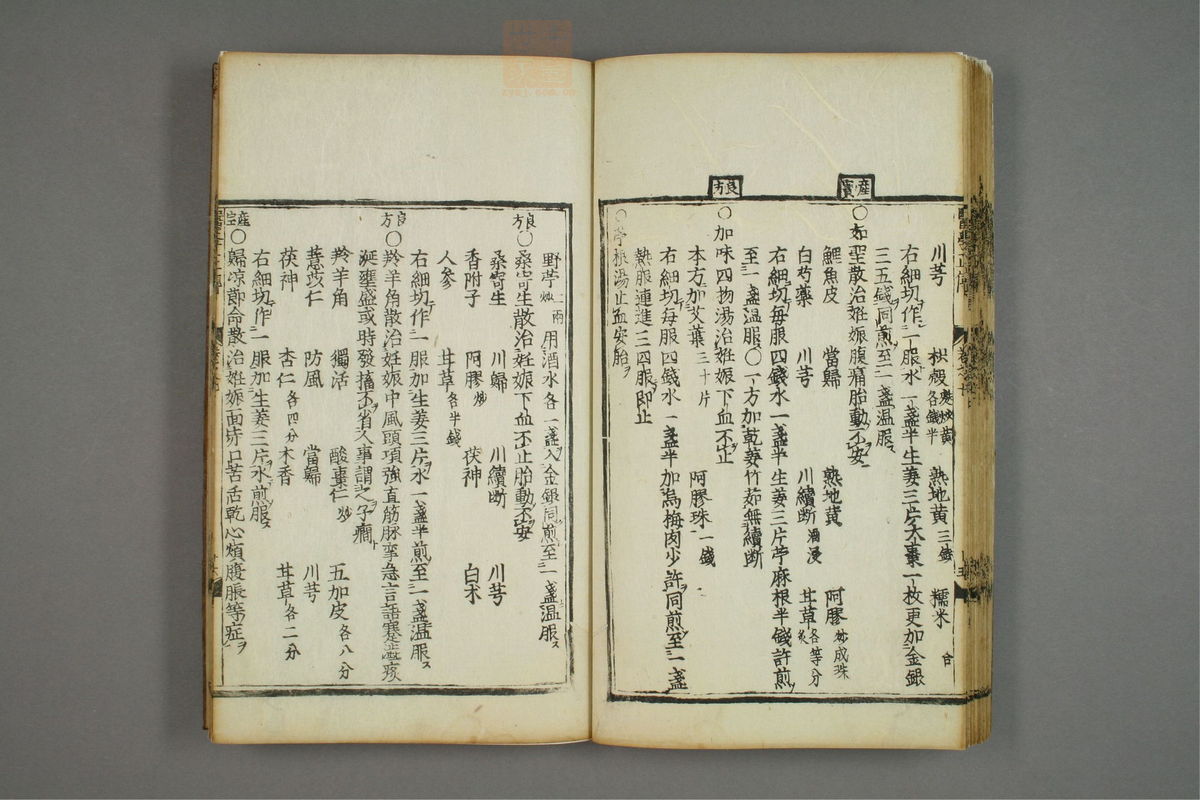 川芎 枳殻麩炒黄各錢半 熟地黄三錢 糯米一合
右細切作一服水一盞半生姜三片大棗一枚更加金銀
三五錢同煎至一盞温服ス
産寳
○如聖散治妊娠腹痛胎動不安
鯉魚皮 當歸 熟地黄 阿膠炒成珠
白芍藥 川芎 川續断酒浸 甘草炙各等分
右細切毎服四錢水一盞半生姜三片苧麻根半錢許煎
至一盞温服○一方加乾姜竹茹無續断
良方
○加味四物湯治妊娠下血不止
本方加艾葉三十片 阿膠珠一錢
右細切毎服四錢水一盞半加烏梅肉少許同煎至一盞
熱服連進三四服即止
○苧根湯止血安胎ヲ
野苧炒二兩 用酒水各一盞入金銀同煎至一盞温服ス
良方
○桑寄生散治妊娠下血不止胎動不安
桑寄生 川歸 川續断 川芎
香附子 阿膠炒 茯神 白朮
人參 甘草各半錢
右細切作一服加生姜三片水一盞半煎至一盞温服ス
良方
○羚羊角散治妊娠中風頭項強直筋脉孿急言語蹇澁痰
涎壅盛或時發搐不省人事謂之子癎
羚羊角 獨活 酸棗仁炒 五加皮各八分
薏苡仁 防風 當歸 川芎
茯神 杏仁各四分 木香 甘草各二分
右細切作一服加生姜三片水煎服ス
産宝
○歸凉節命散治妊娠面赤口苦舌乾心煩腹脹等症ヲ